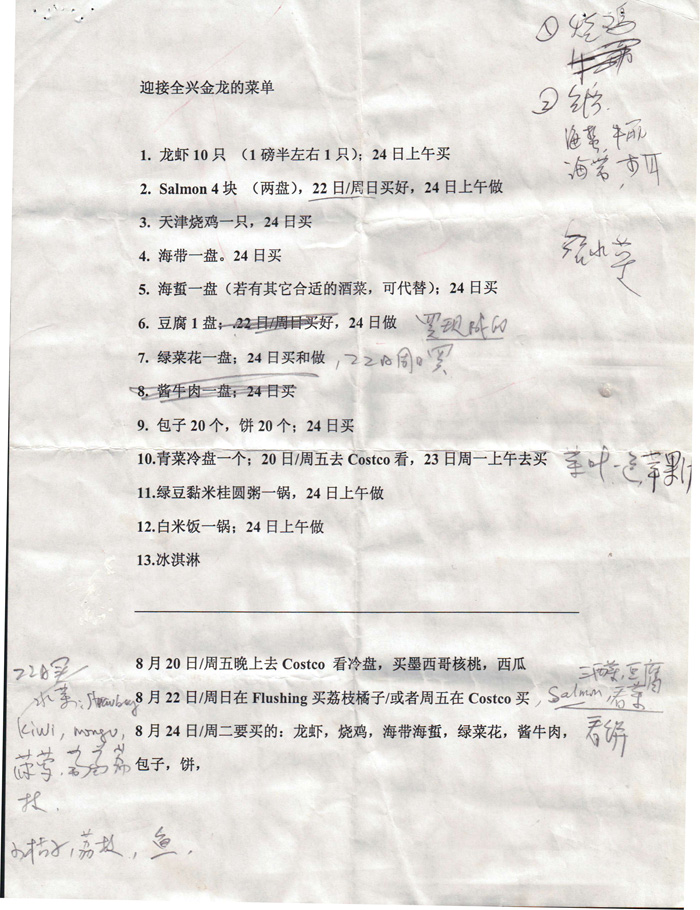 ① 烧鸡
②
海蜇,牛肉
海带,
迎接全兴金龙的菜单
1. 龙虾 10 只 （1 磅半左右 1 只）；24 日上午买
2. Salmon 4 块 （两盘），22 日/周日买好，24 日上午做
3. 天津烧鸡一只，24 日买
4. 海带一盘。24 日买
5. 海蜇一盘（若有其它合适的酒菜，可代替）；24 日买
6. 豆腐 1 盘；22 日/周日买好，24 日做 买现成的
7. 绿菜花一盘；24 日买和做，22日周日买
8. 酱牛肉一盘；24 日买
9. 包子 20 个，饼 20 个；24 日买
10.青菜冷盘一个；20 日/周五去 Costco 看，23 日周一上午去买 菜叶 苹果
11.绿豆黏米桂圆粥一锅，24 日上午做
12.白米饭一锅；24 日上午做
13.冰淇淋
8 月 20 日/周五晚上去 Costco 看冷盘，买墨西哥核桃，西瓜
8 月 22 日/周日在 Flushing 买荔枝橘子/或者周五在 Costco 买，
8 月 24 日/周二要买的：龙虾，烧鸡，海带海蜇，绿菜花，酱牛肉，
包子，饼，
豆腐
Salmon 看菜
看饼
22日买
水果: Strawberry
kiwi, mango,
菠萝, 荔
枝.
小桔子,荔枝,鱼,